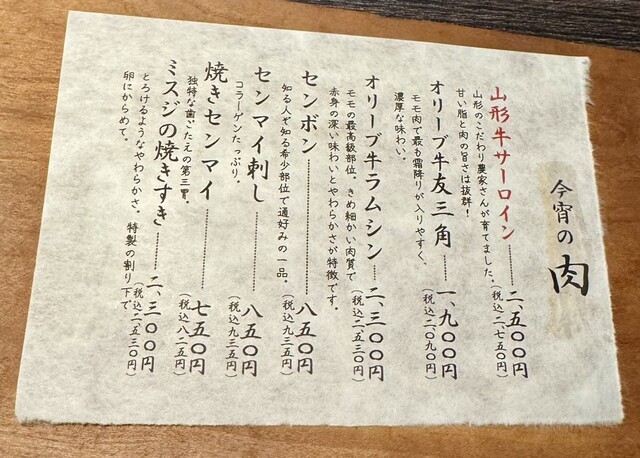 今宵の肉
山形牛サーロイン……二、五〇〇円
山形のこだわり農家さんが育てました。(税込二、七五〇円)
甘い脂と肉の旨さは抜群！
オリーブ牛友三角……一、九〇〇円
モモ肉で最も霜降りが入りやすく、(税込二、〇九〇円)
濃厚な味わい。
オリーブ牛ラムシン……二、三〇〇円
モモの最高級部位。きめ細かい肉質で(税込二、五三〇円)
赤身の深い味わいとやわらかさが特徴です。
センボン……八五〇円
知る人ぞ知る希少部位で通好みの一品。(税込九三五円)
センマイ刺し……八五〇円
コラーゲンたっぷり。(税込九三五円)
焼きセンマイ……七五〇円
独特な歯ごたえの第三胃。(税込八二五円)
ミスジの焼きすき……二、三〇〇円
とろけるようなやわらかさ。特製の割り下で(税込二、五三〇円)
卵にからめて。